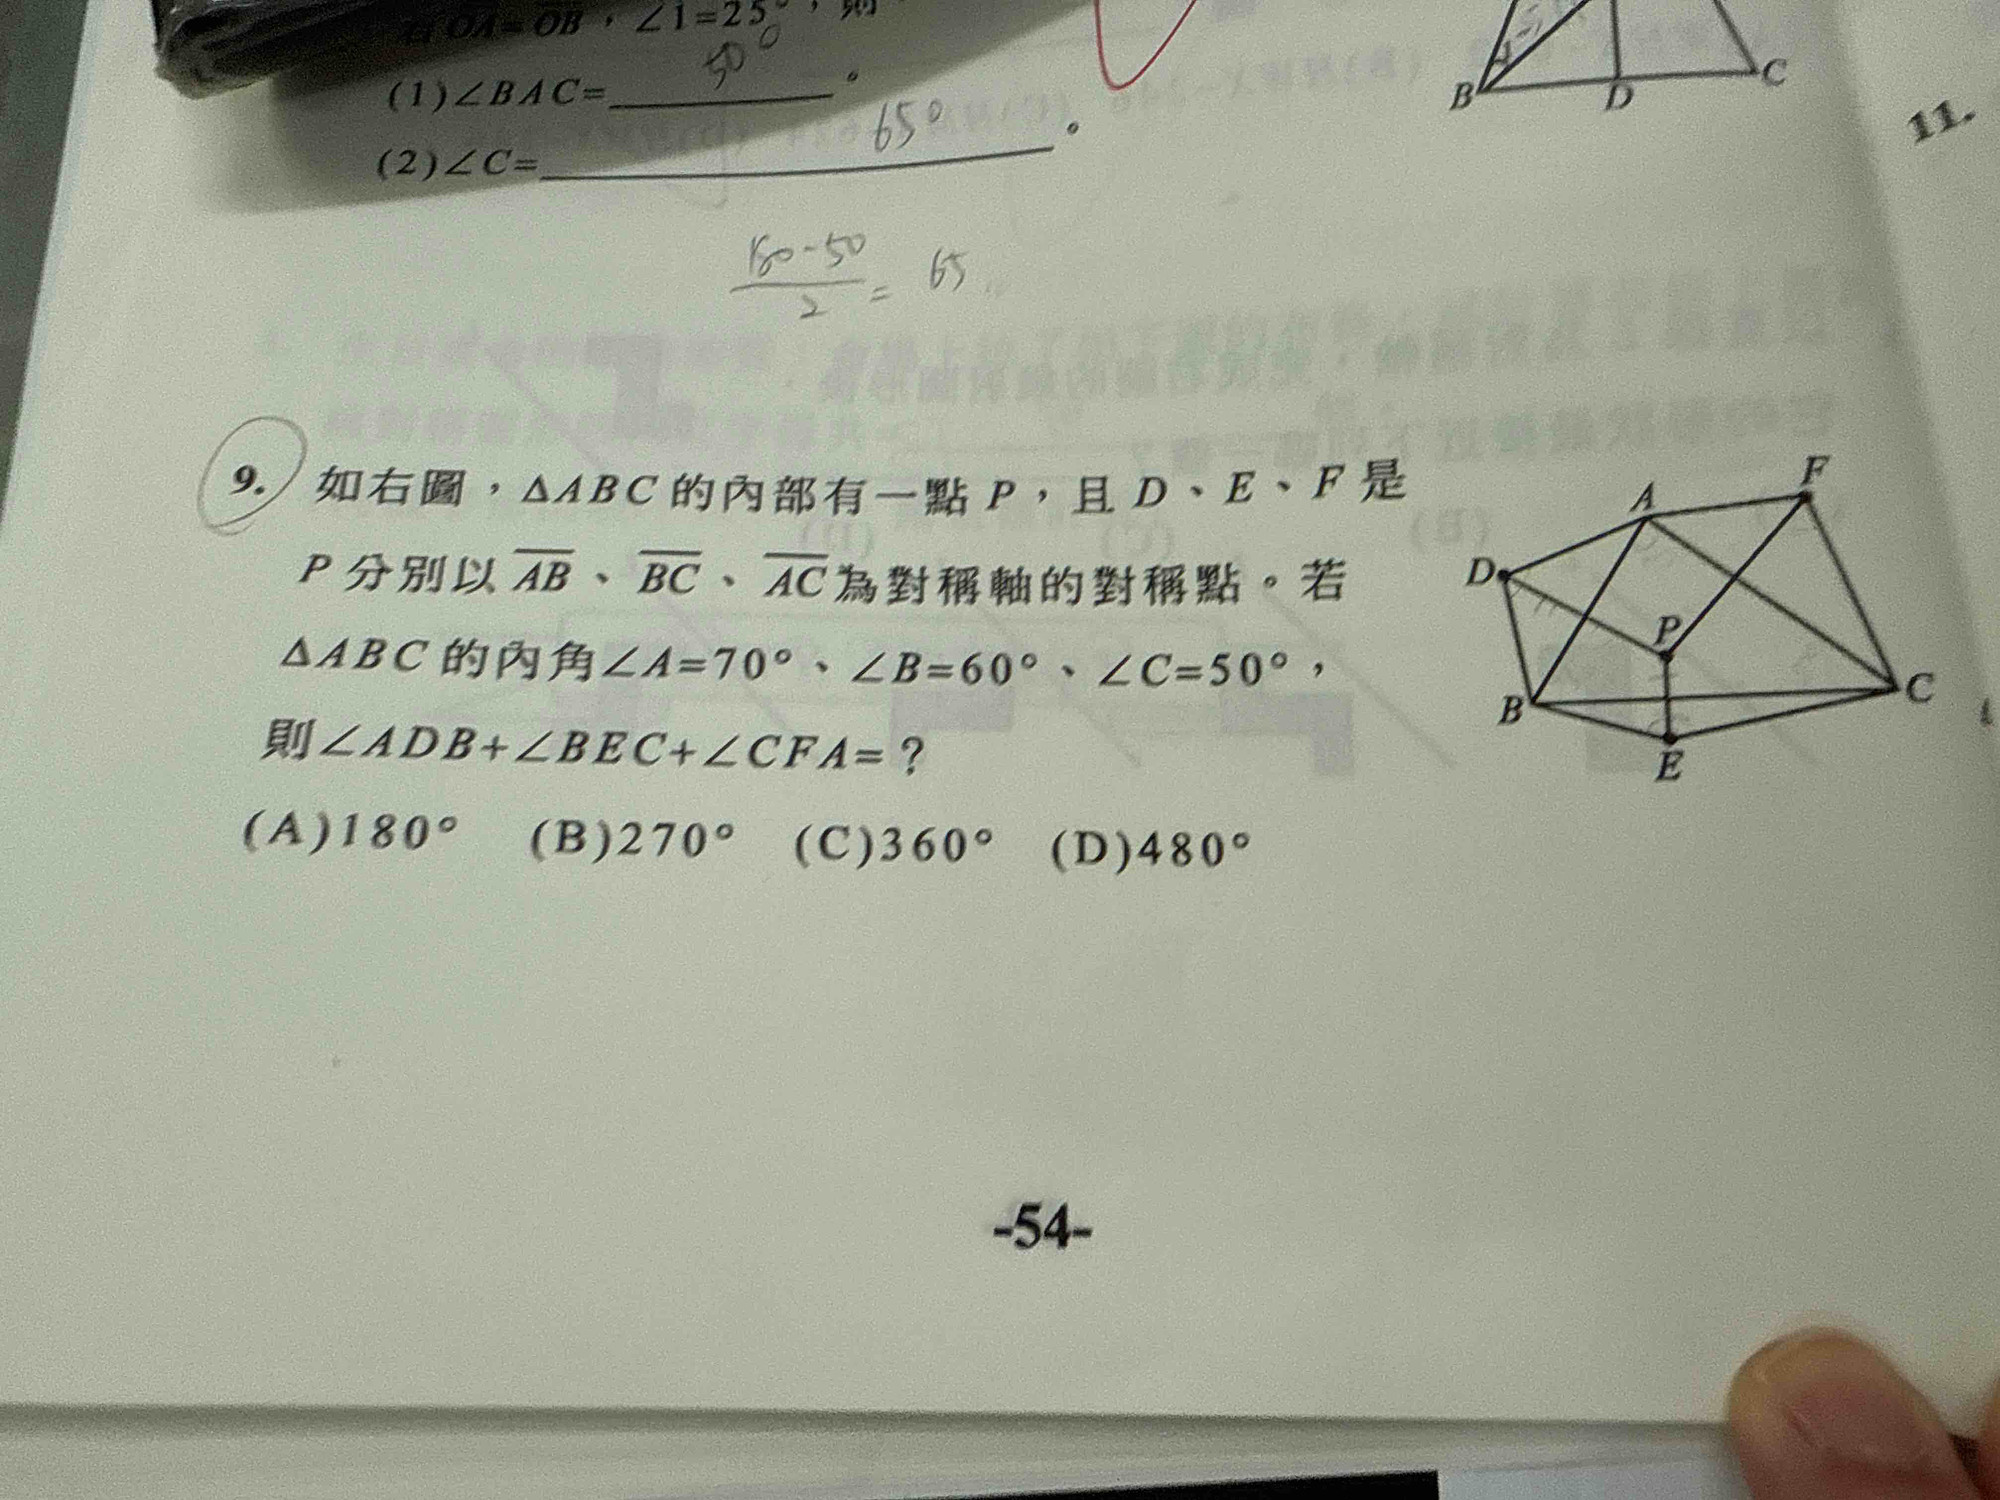 OA=OB，∠1=25°，則
(1)∠BAC= 50° 。
(2)∠C= 65° 。
180-50
2 = 65
B D C
11.
9. 如右圖，△ABC的內部有一點P，且D、E、F是
P分別以AB、BC、AC為對稱軸的對稱點。若
△ABC的內角∠A=70°、∠B=60°、∠C=50°，
則∠ADB+∠BEC+∠CFA=？
(A)180° (B)270° (C)360° (D)480°
F
A
D
P
C
B
E
-54-